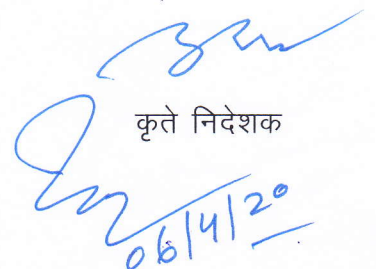 कृते निदेशक
06/4/20